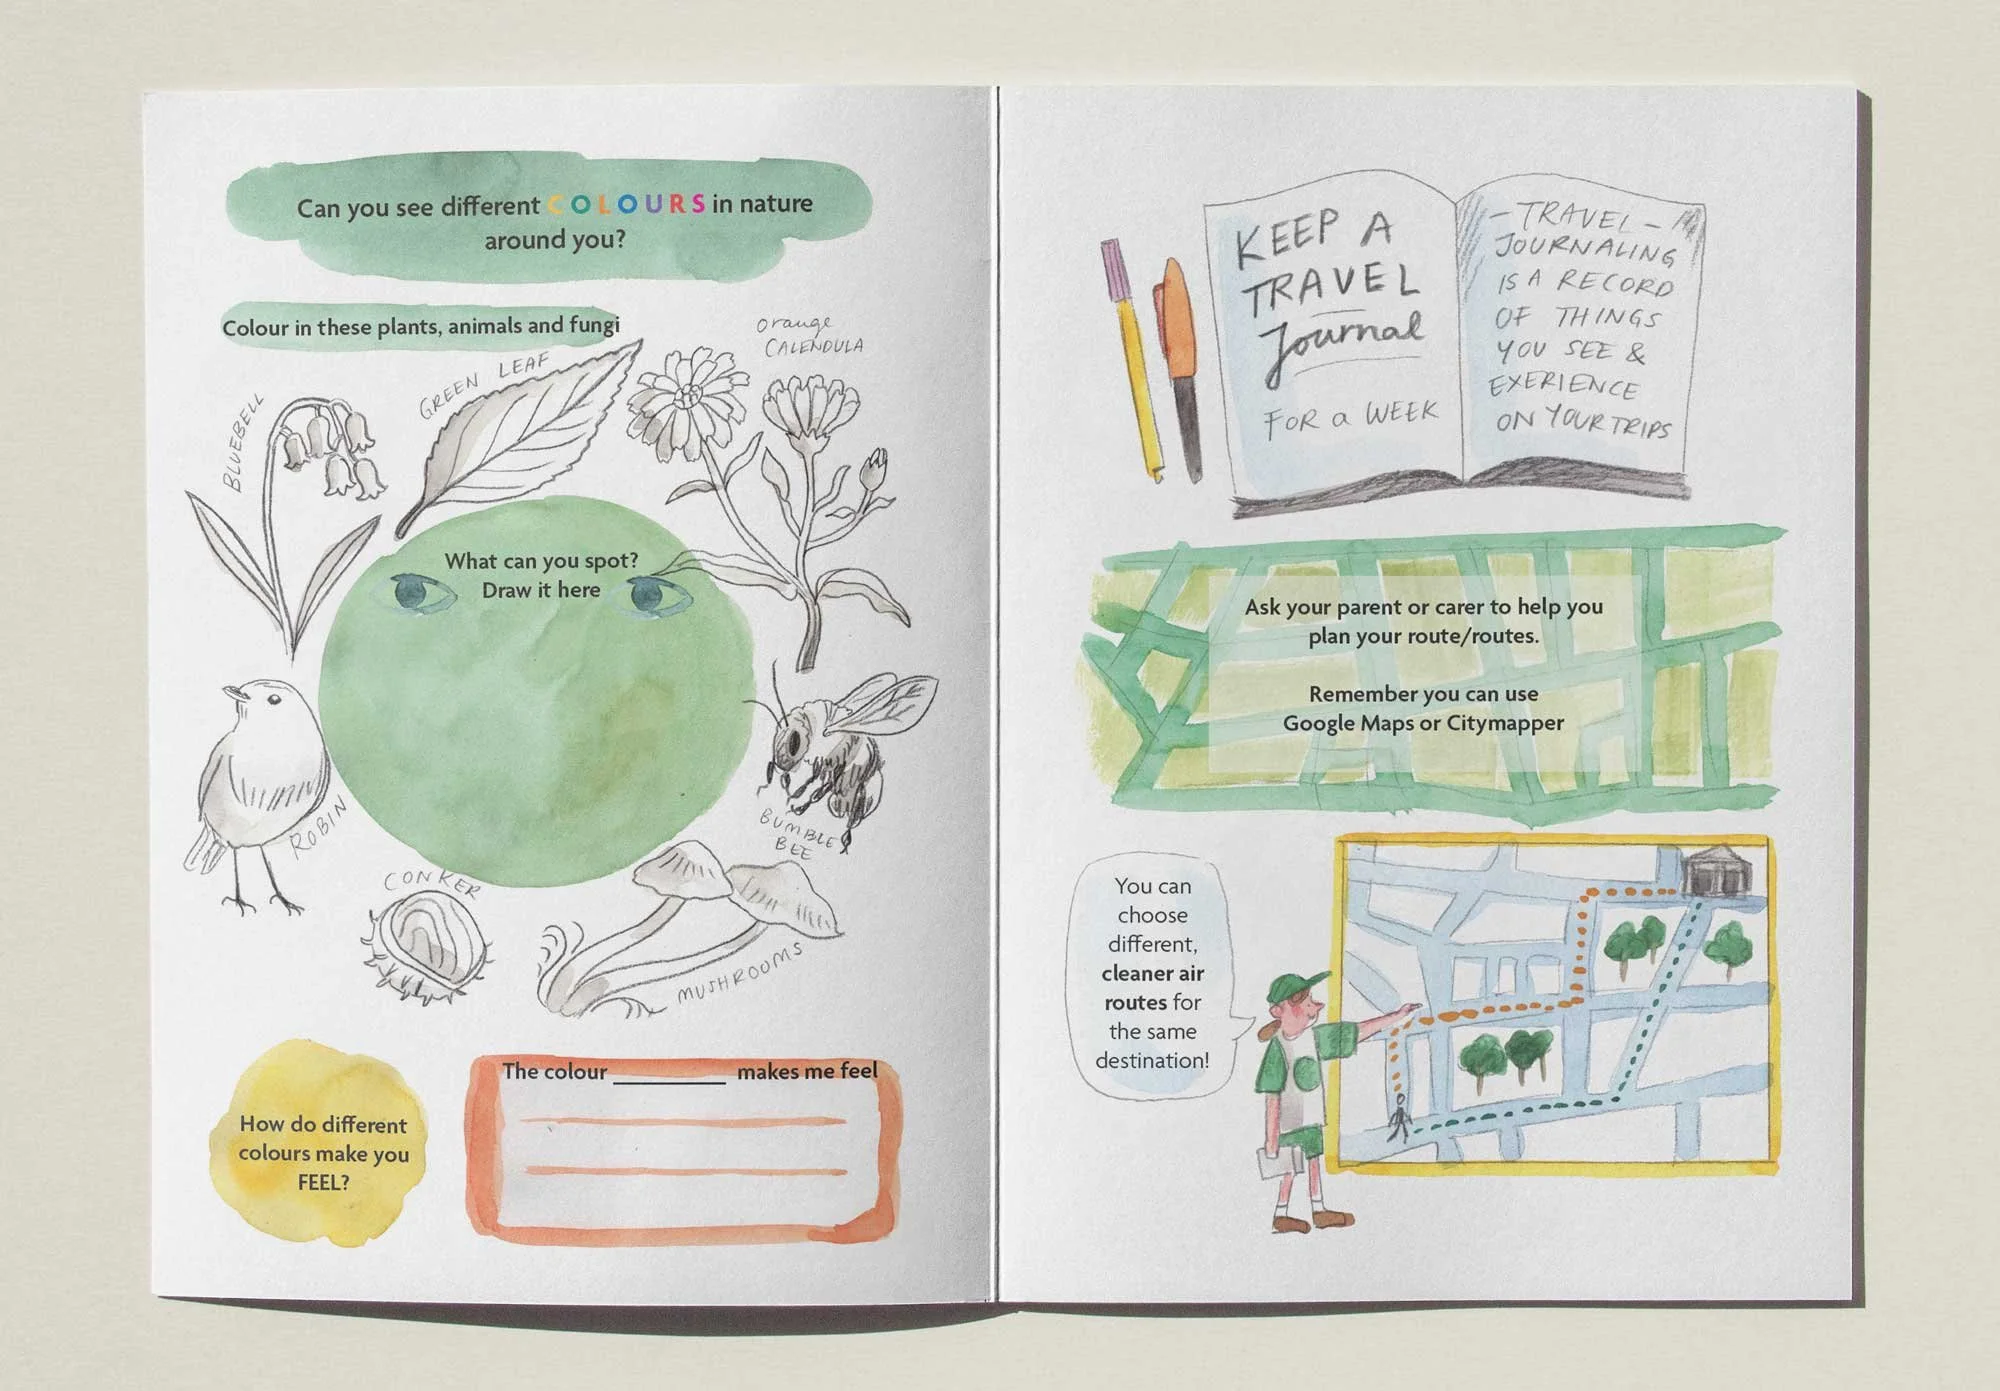 Can you see different COLOURS in nature
around you?
Colour in these plants, animals and fungi
BLUEBELL
GREEN LEAF
orange
CALENDULA
What can you spot?
Draw it here
ROBIN
BUMBLE
BEE
CONKER
MUSHROOMS
How do different
colours make you
FEEL?
The colour __________ makes me feel
KEEP A
TRAVEL
Journal
FOR a WEEK
- TRAVEL -
JOURNALING
IS A RECORD
OF THINGS
YOU SEE &
EXERIENCE
ON YOUR TRIPS
Ask your parent or carer to help you
plan your route/routes.
Remember you can use
Google Maps or Citymapper
You can
choose
different,
cleaner air
routes for
the same
destination!